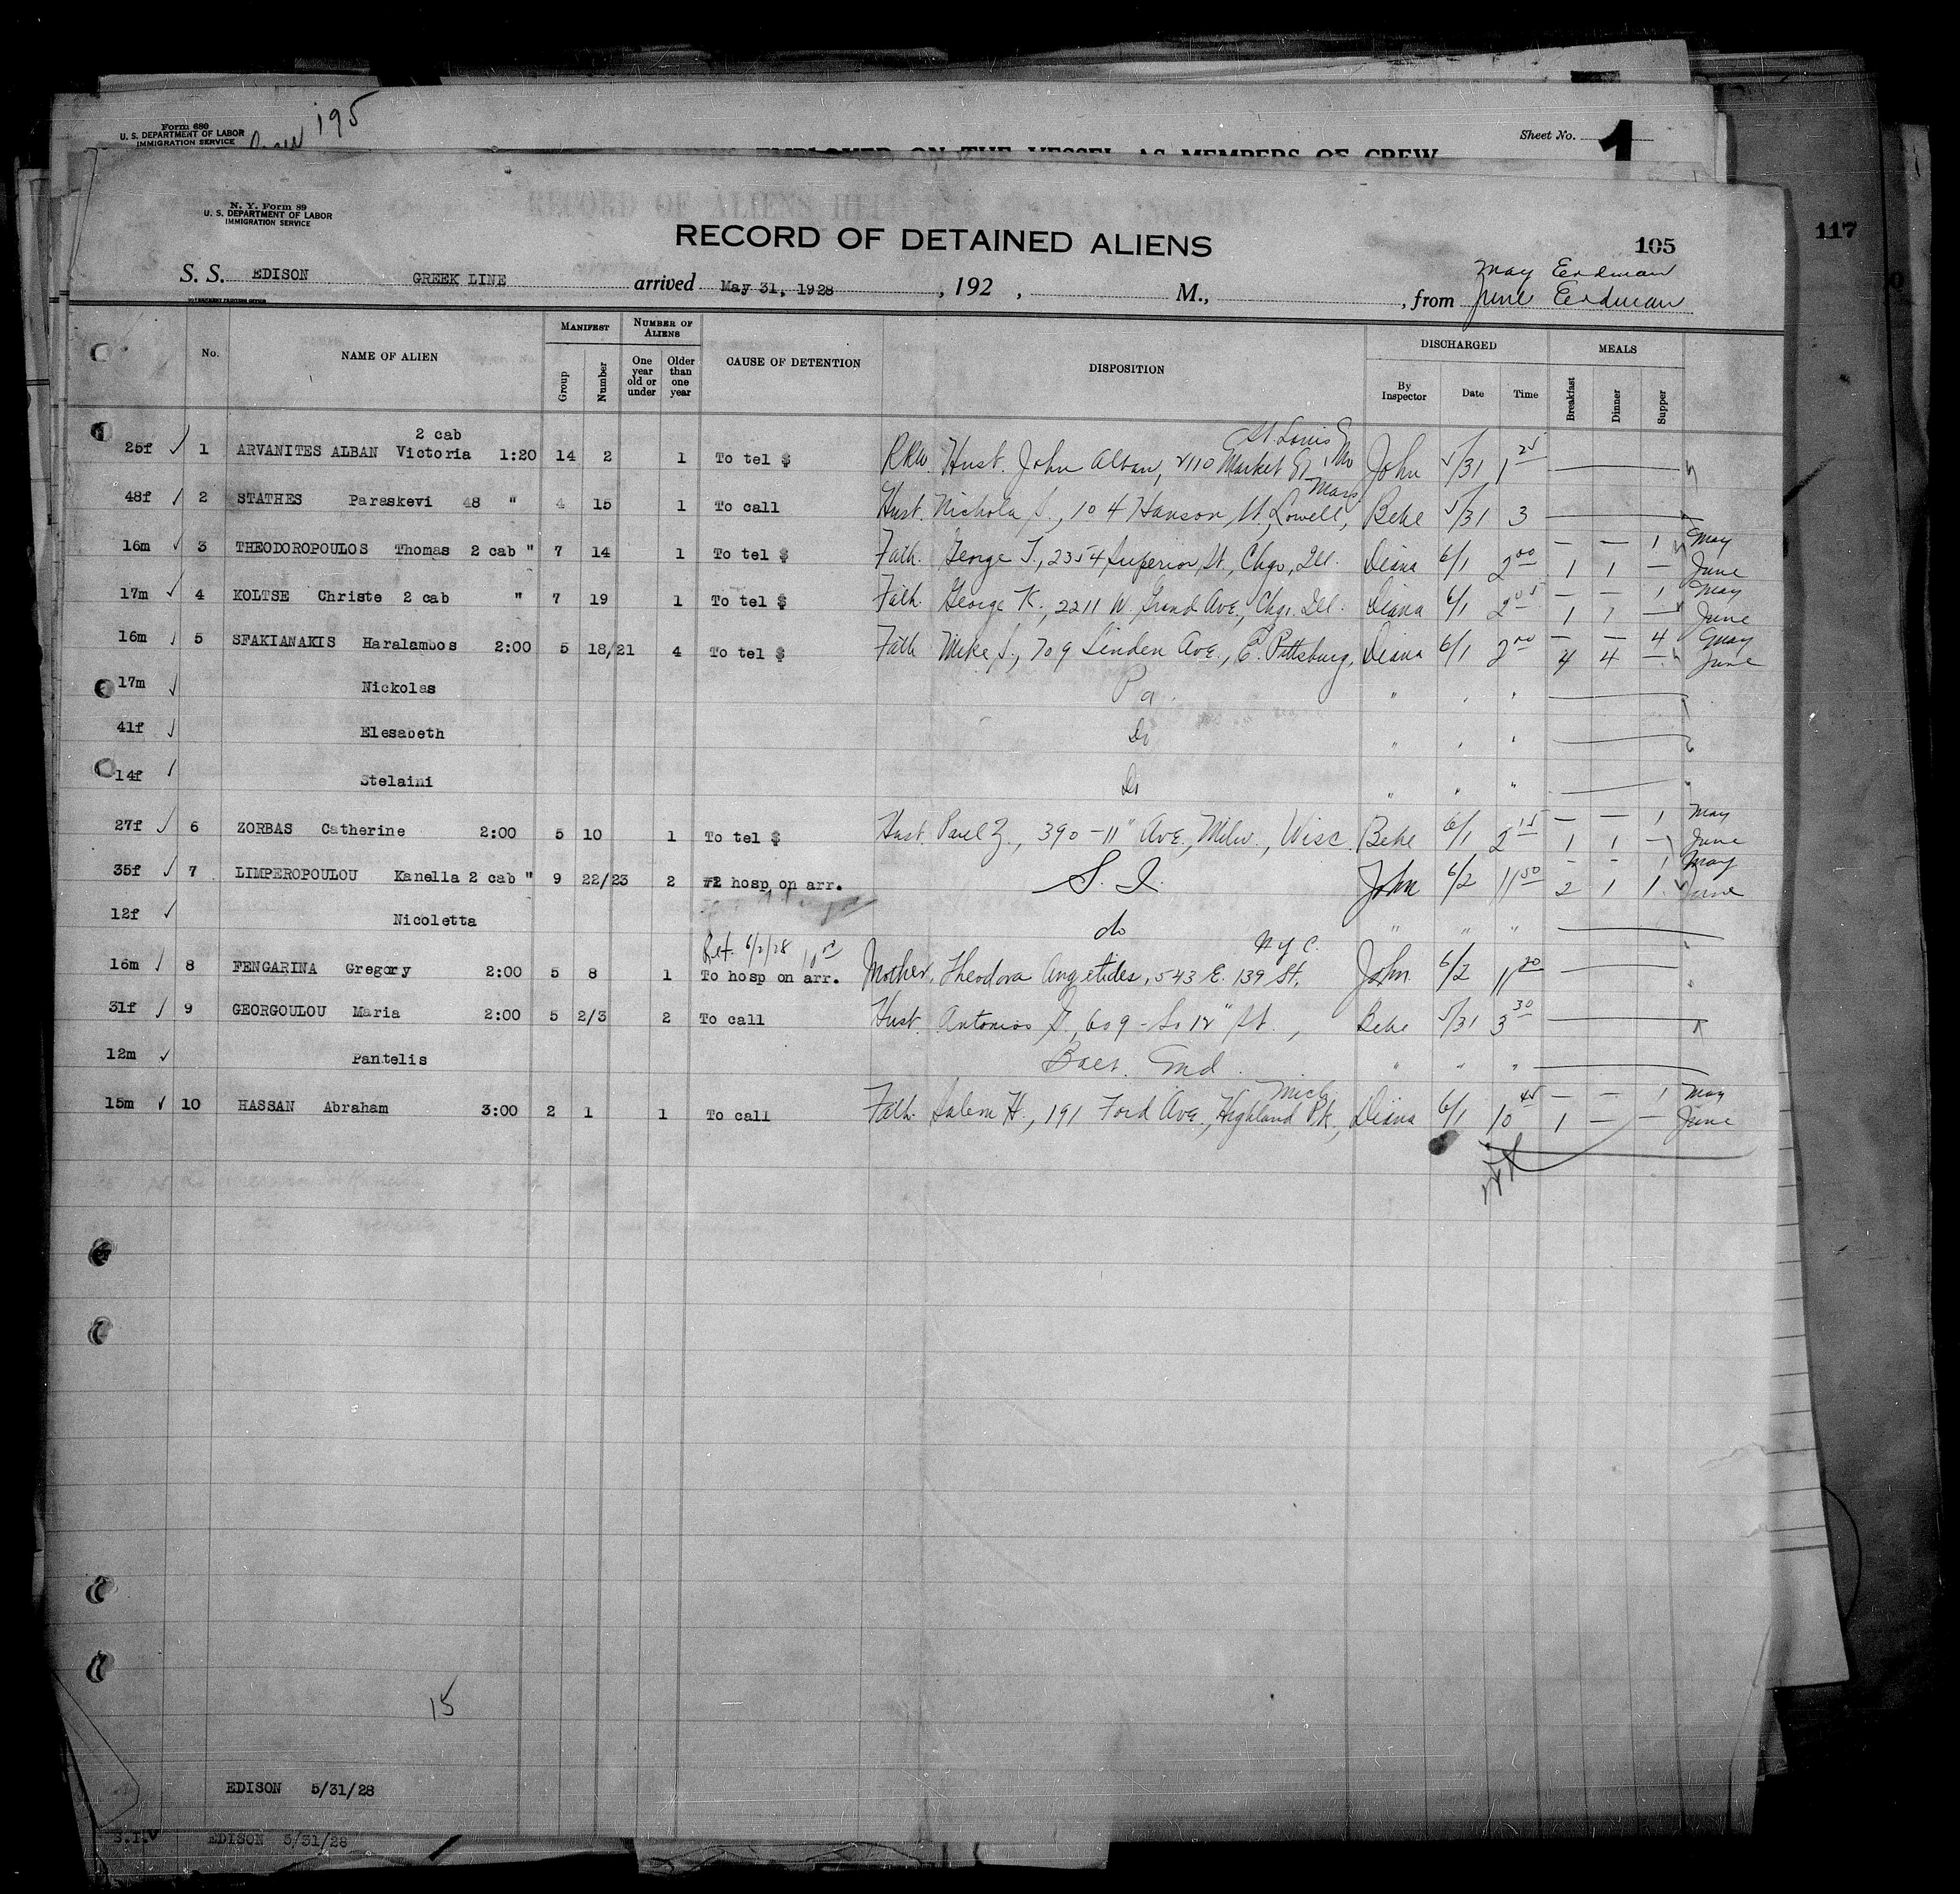 Form 680
U. S. DEPARTMENT OF LABOR
IMMIGRATION SERVICE
195
Sheet No. 1
EMPLOYED ON THE VESSEL AS MEMBERS OF CREW
117
N. Y. Form 89
U. S. DEPARTMENT OF LABOR
IMMIGRATION SERVICE
RECORD OF ALIENS HELD
RECORD OF DETAINED ALIENS
105
S. S. EDISON GREEK LINE arrived May 31, 1928, 192 , M., , from May Erdman
June Erdman
No. NAME OF ALIEN MANIFEST Group Number NUMBER OF ALIENS One year old or under Older than one year CAUSE OF DETENTION DISPOSITION DISCHARGED By Inspector Date Time MEALS Breakfast Dinner Supper
2 cab St Louis
25f ✓ 1 ARVANITES ALBAN Victoria 1:20 14 2 1 To tel $ RRW. Hust. John Alban, 2110 Market St, Mo John 5/31 1 25
Mass
48f ✓ 2 STATHES Paraskevi 48 " 4 15 1 To call Hust. Nichola S., 104 Hanson St, Lowell, Bebe 5/31 3
16m ✓ 3 THEODOROPOULOS Thomas 2 cab " 7 14 1 To tel $ Fath. George T., 2354 Superior St., Chgo, Ill. Diana 6/1 2 00 — — 1 May
1 1 — June
17m ✓ 4 KOLTSE Christe 2 cab " 7 19 1 To tel $ Fath. George K., 2211 W. Grand Ave., Chgo, Ill. Diana 6/1 2 05 — — 1 May
1 1 — June
16m ✓ 5 SFAKIANAKIS Haralambos 2:00 5 18/21 4 To tel $ Fath Mike S., 709 Linden Ave., E. Pittsburg, Diana 6/1 2 00 — — 4 May
4 4 — June
17m ✓ Nickolas Pa. " " "
41f ✓ Elesabeth Do " " "
14f ✓ Stelaini Do " " "
27f ✓ 6 ZORBAS Catherine 2:00 5 10 1 To tel $ Hust. Paul Z., 390-11" Ave., Milw., Wisc. Bebe 6/1 2 15 — — 1 May
1 1 — June
35f ✓ 7 LIMPEROPOULOU Kanella 2 cab " 9 22/23 2 #2 hosp on arr. S. I. John 6/2 11 50 — — 1 May
2 1 1 June
12f ✓ Nicoletta do " " "
Ret. 6/2/28 N Y C.
16m ✓ 8 FENGARINA Gregory 2:00 5 8 1 To hosp on arr. Mother, Theodora Angetides, 543 E. 139 St. John 6/2 11 20
31f ✓ 9 GEORGOULOU Maria 2:00 5 2/3 2 To call Hust. Antonios G., 609 - So 12" St., Bebe 5/31 3 30
12m ✓ Pantelis Balt. Md. " " "
Mich
15m ✓ 10 HASSAN Abraham 3:00 2 1 1 To call Fath. Salem H., 191 Ford Ave., Highland Pk., Diana 6/1 10 45 — — 1 May
1 — — June
15
EDISON 5/31/28
S.I. EDISON 5/31/28